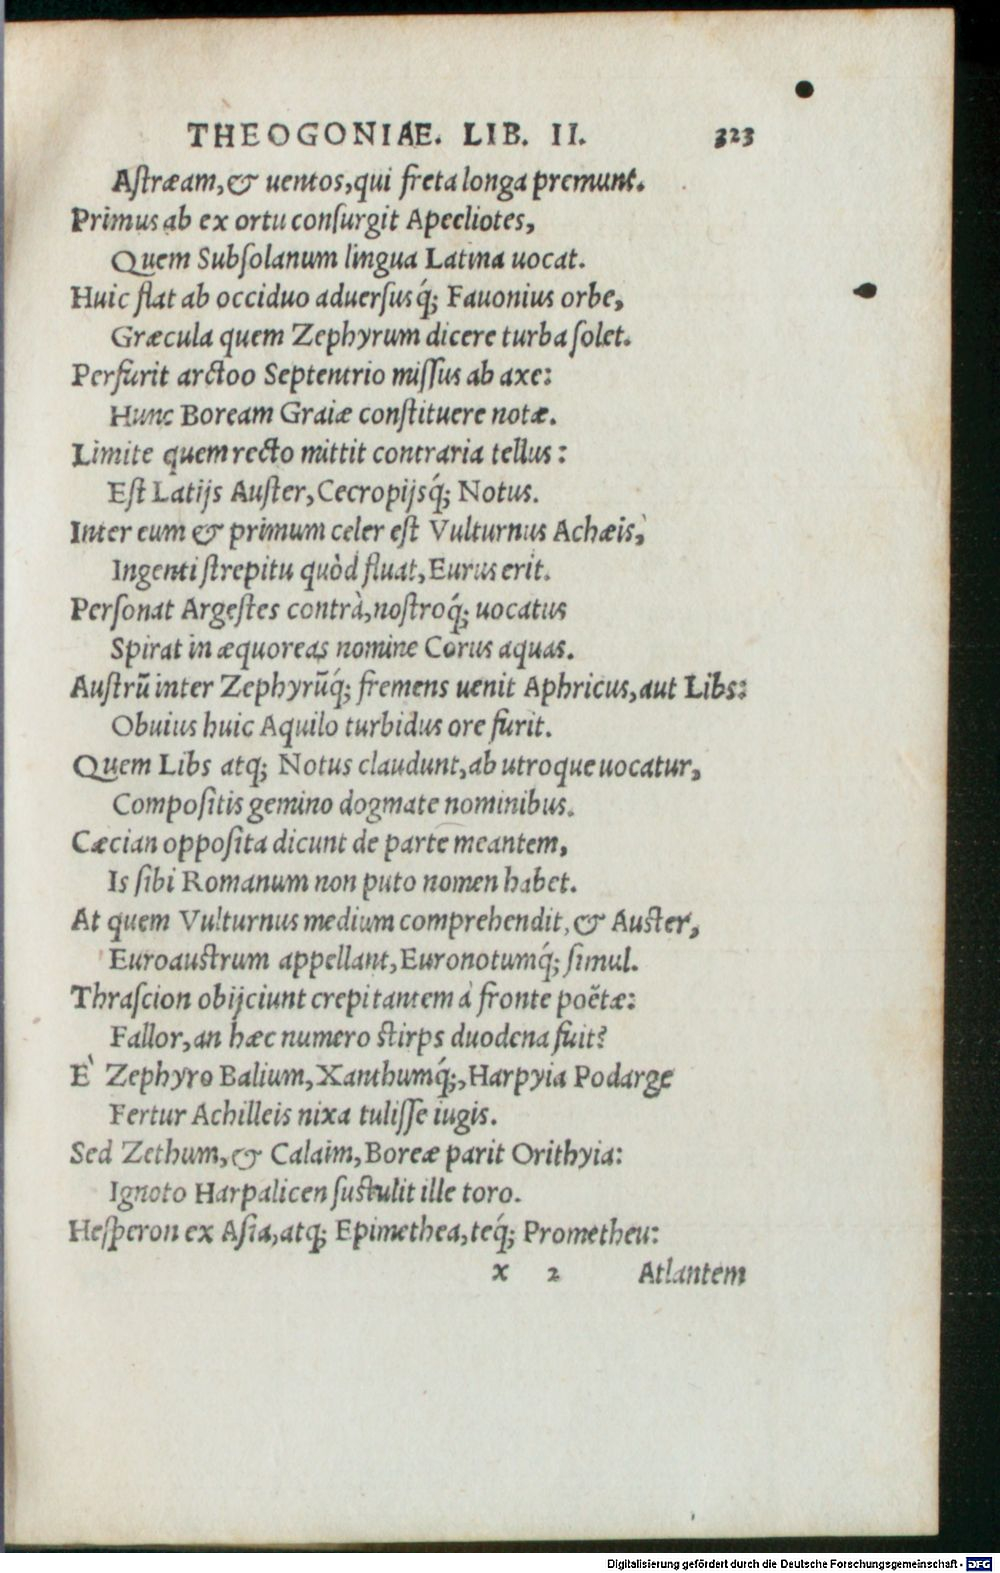 THEOGONIAE. LIB. II. 323
Aſtræam, & uentos, qui freta longa premunt.
Primus ab ex ortu conſurgit Apeeliotes,
Quem Subſolanum lingua Latina uocat.
Huic flat ab occiduo aduerſusq́; Fauonius orbe,
Græcula quem Zephyrum dicere turba ſolet.
Perfurit arctoo Septentrio miſſus ab axe:
Hunc Boream Graiæ conſtituere notæ.
Limite quem recto mittit contraria tellus:
Eſt Latijs Auſter, Cecropijsq́; Notus.
Inter eum & primum celer eſt Vulturnus Achæis,
Ingenti ſtrepitu quòd fluat, Eurus erit.
Perſonat Argeſtes contrà, noſtroq́; uocatus
Spirat in æquoreas nomine Corus aquas.
Auſtrũ inter Zephyrũq́; fremens uenit Aphricus, aut Libs:
Obuius huic Aquilo turbidus ore furit.
Quem Libs atq; Notus claudunt, ab utroque uocatur,
Compoſitis gemino dogmate nominibus.
Cæcian oppoſita dicunt de parte meantem,
Is ſibi Romanum non puto nomen habet.
At quem Vulturnus medium comprehendit, & Auſter,
Euroauſtrum appellant, Euronotumq́; ſimul.
Thraſcion obijciunt crepitantem à fronte poëtæ:
Fallor, an hæc numero ſtirps duodena fuit?
È Zephyro Balium, Xanthumq́;, Harpyia Podarge
Fertur Achilleis nixa tuliſſe iugis.
Sed Zethum, & Calaim, Boreæ parit Orithyia:
Ignoto Harpalicen ſuſtulit ille toro.
Heſperon ex Aſia, atq; Epimethea, teq́; Prometheu:
x 2 Atlantem
Digitalisierung gefördert durch die Deutsche Forschungsgemeinschaft - DFG